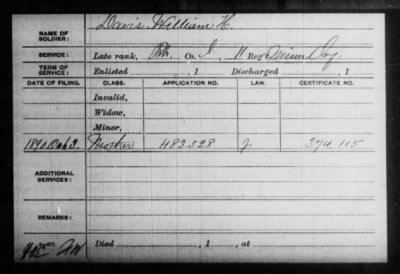 NAME OF SOLDIER: Davis, William H.
SERVICE: Late rank, Co. I, 11 Reg't Minn
TERM OF SERVICE: Enlisted , 1 Discharged , 1
DATE OF FILING. CLASS. APPLICATION NO. LAW. CERTIFICATE NO.
Invalid,
Widow,
Minor,
Mother 483528 374,115
ADDITIONAL SERVICES:
REMARKS:
Died , 1 , at